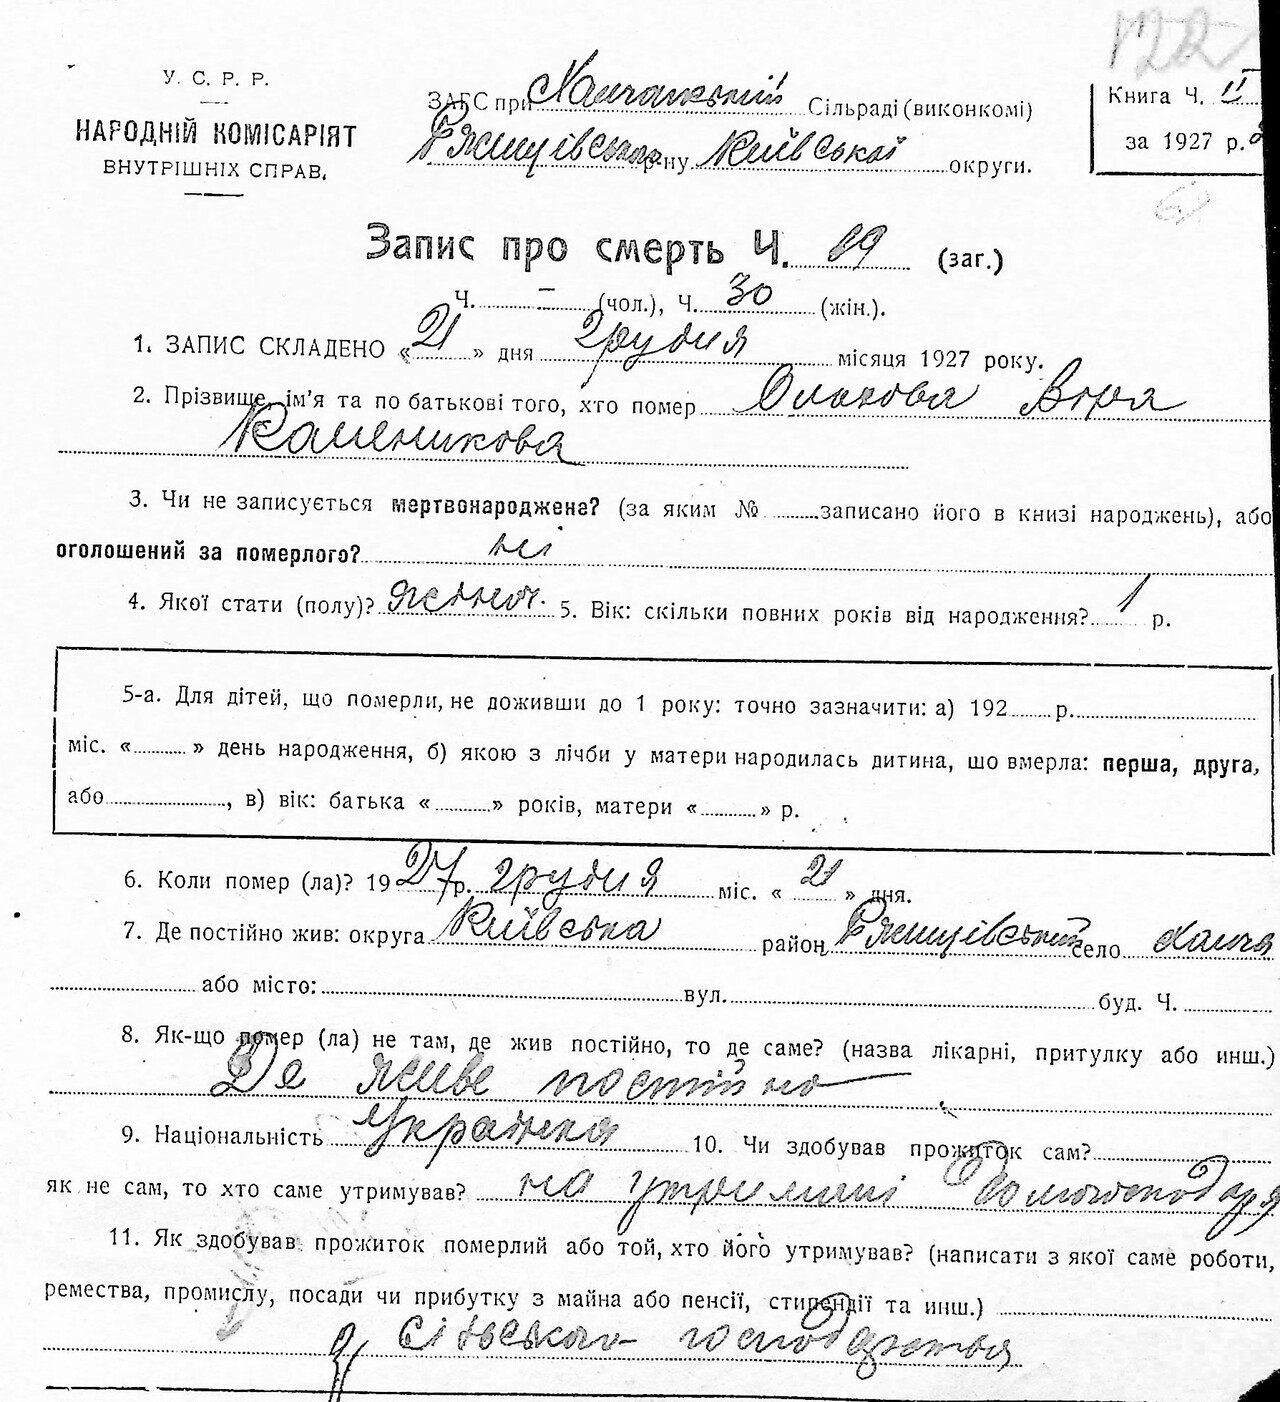 122
У. С. Р. Р.
НАРОДНІЙ КОМІСАРІЯТ
ВНУТРІШНІХ СПРАВ.
ЗАГС при Ханчанській Сільраді (виконкомі)
Ржищівського р-ну Київської округи.
Книга Ч. II
за 1927 р.
Запис про смерть Ч. 89 (заг.)
Ч. – (чол.), Ч. 30 (жін.).
1. ЗАПИС СКЛАДЕНО « 21 » дня грудня місяця 1927 року.
2. Прізвище, ім'я та по батькові того, хто помер Віра
3. Чи не записується мертвонароджене? (за яким № записано його в книзі народжень), або
оголошений за померлого? ні
4. Якої стати (полу)? жіноч. 5. Вік: скільки повних років від народження? 1 р.
5-а. Для дітей, що померли, не доживши до 1 року: точно зазначити: а) 192 р.
міс. « » день народження, б) якою з лічби у матери народилась дитина, шо вмерла: перша, друга,
або , в) вік: батька « » років, матери « » р.
6. Коли помер (ла)? 1927 р. грудня міс. « 21 » дня.
7. Де постійно жив: округа Київська район Ржищівський село
або місто: вул. буд. Ч.
8. Як-що помер (ла) не там, де жив постійно, то де саме? (назва лікарні, притулку або инш.)
Де живе постійно
9. Національність Українка 10. Чи здобував прожиток сам?
як не сам, то хто саме утримував? на утримані Домогосподаря
11. Як здобував прожиток померлий або той, хто його утримував? (написати з якої саме роботи,
ремества, промислу, посади чи прибутку з майна або пенсії, стипендії та инш.)
З сільського господарства